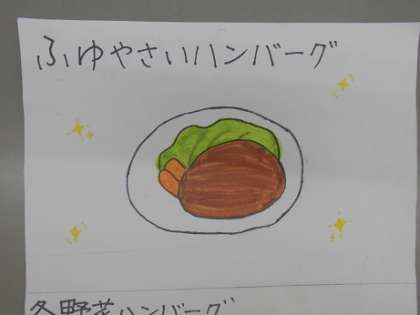 ふゆやさいハンバーグ
冬野菜ハンバーグ